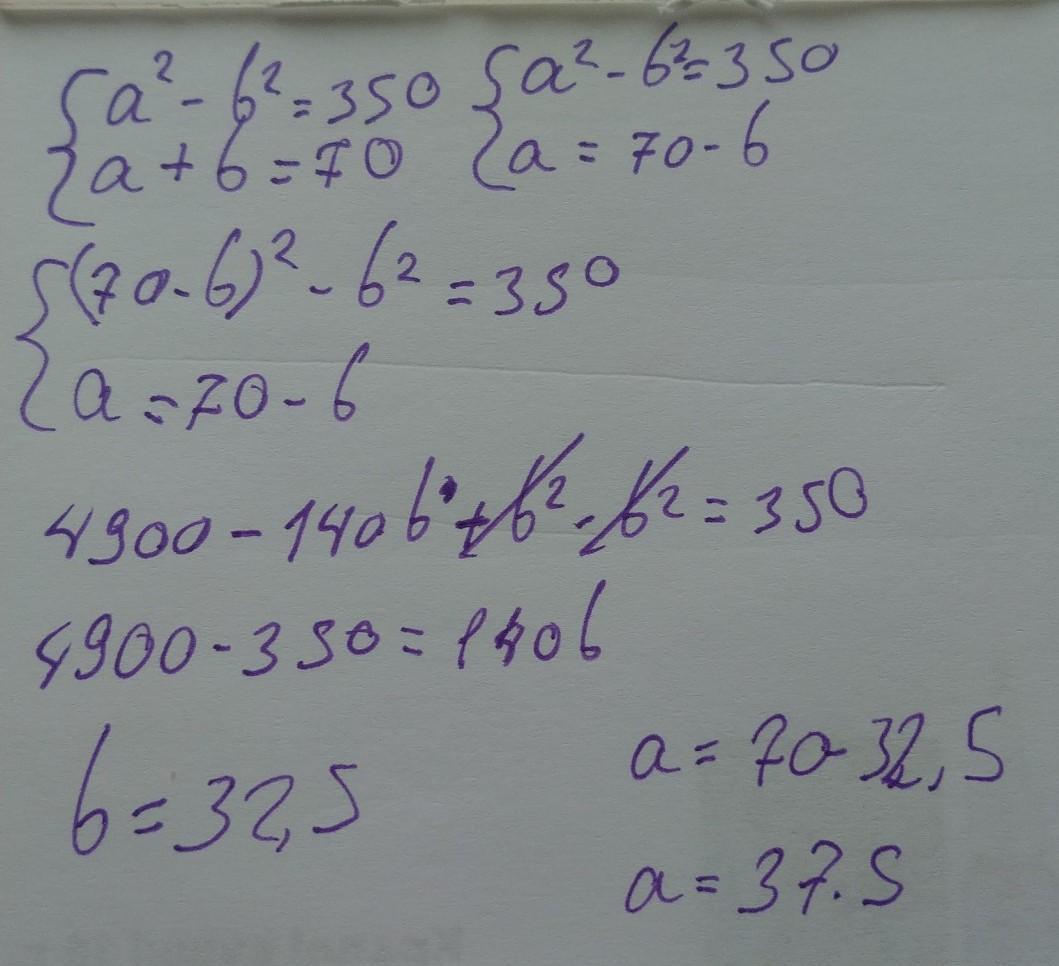 {a² - b² = 350 {a² - b² = 350
{a + b = 70 {a = 70 - b
{(70 - b)² - b² = 350
{a = 70 - b
4900 - 140b + b² - b² = 350
4900 - 350 = 140b
b = 32,5
a = 70 - 32,5
a = 37.5